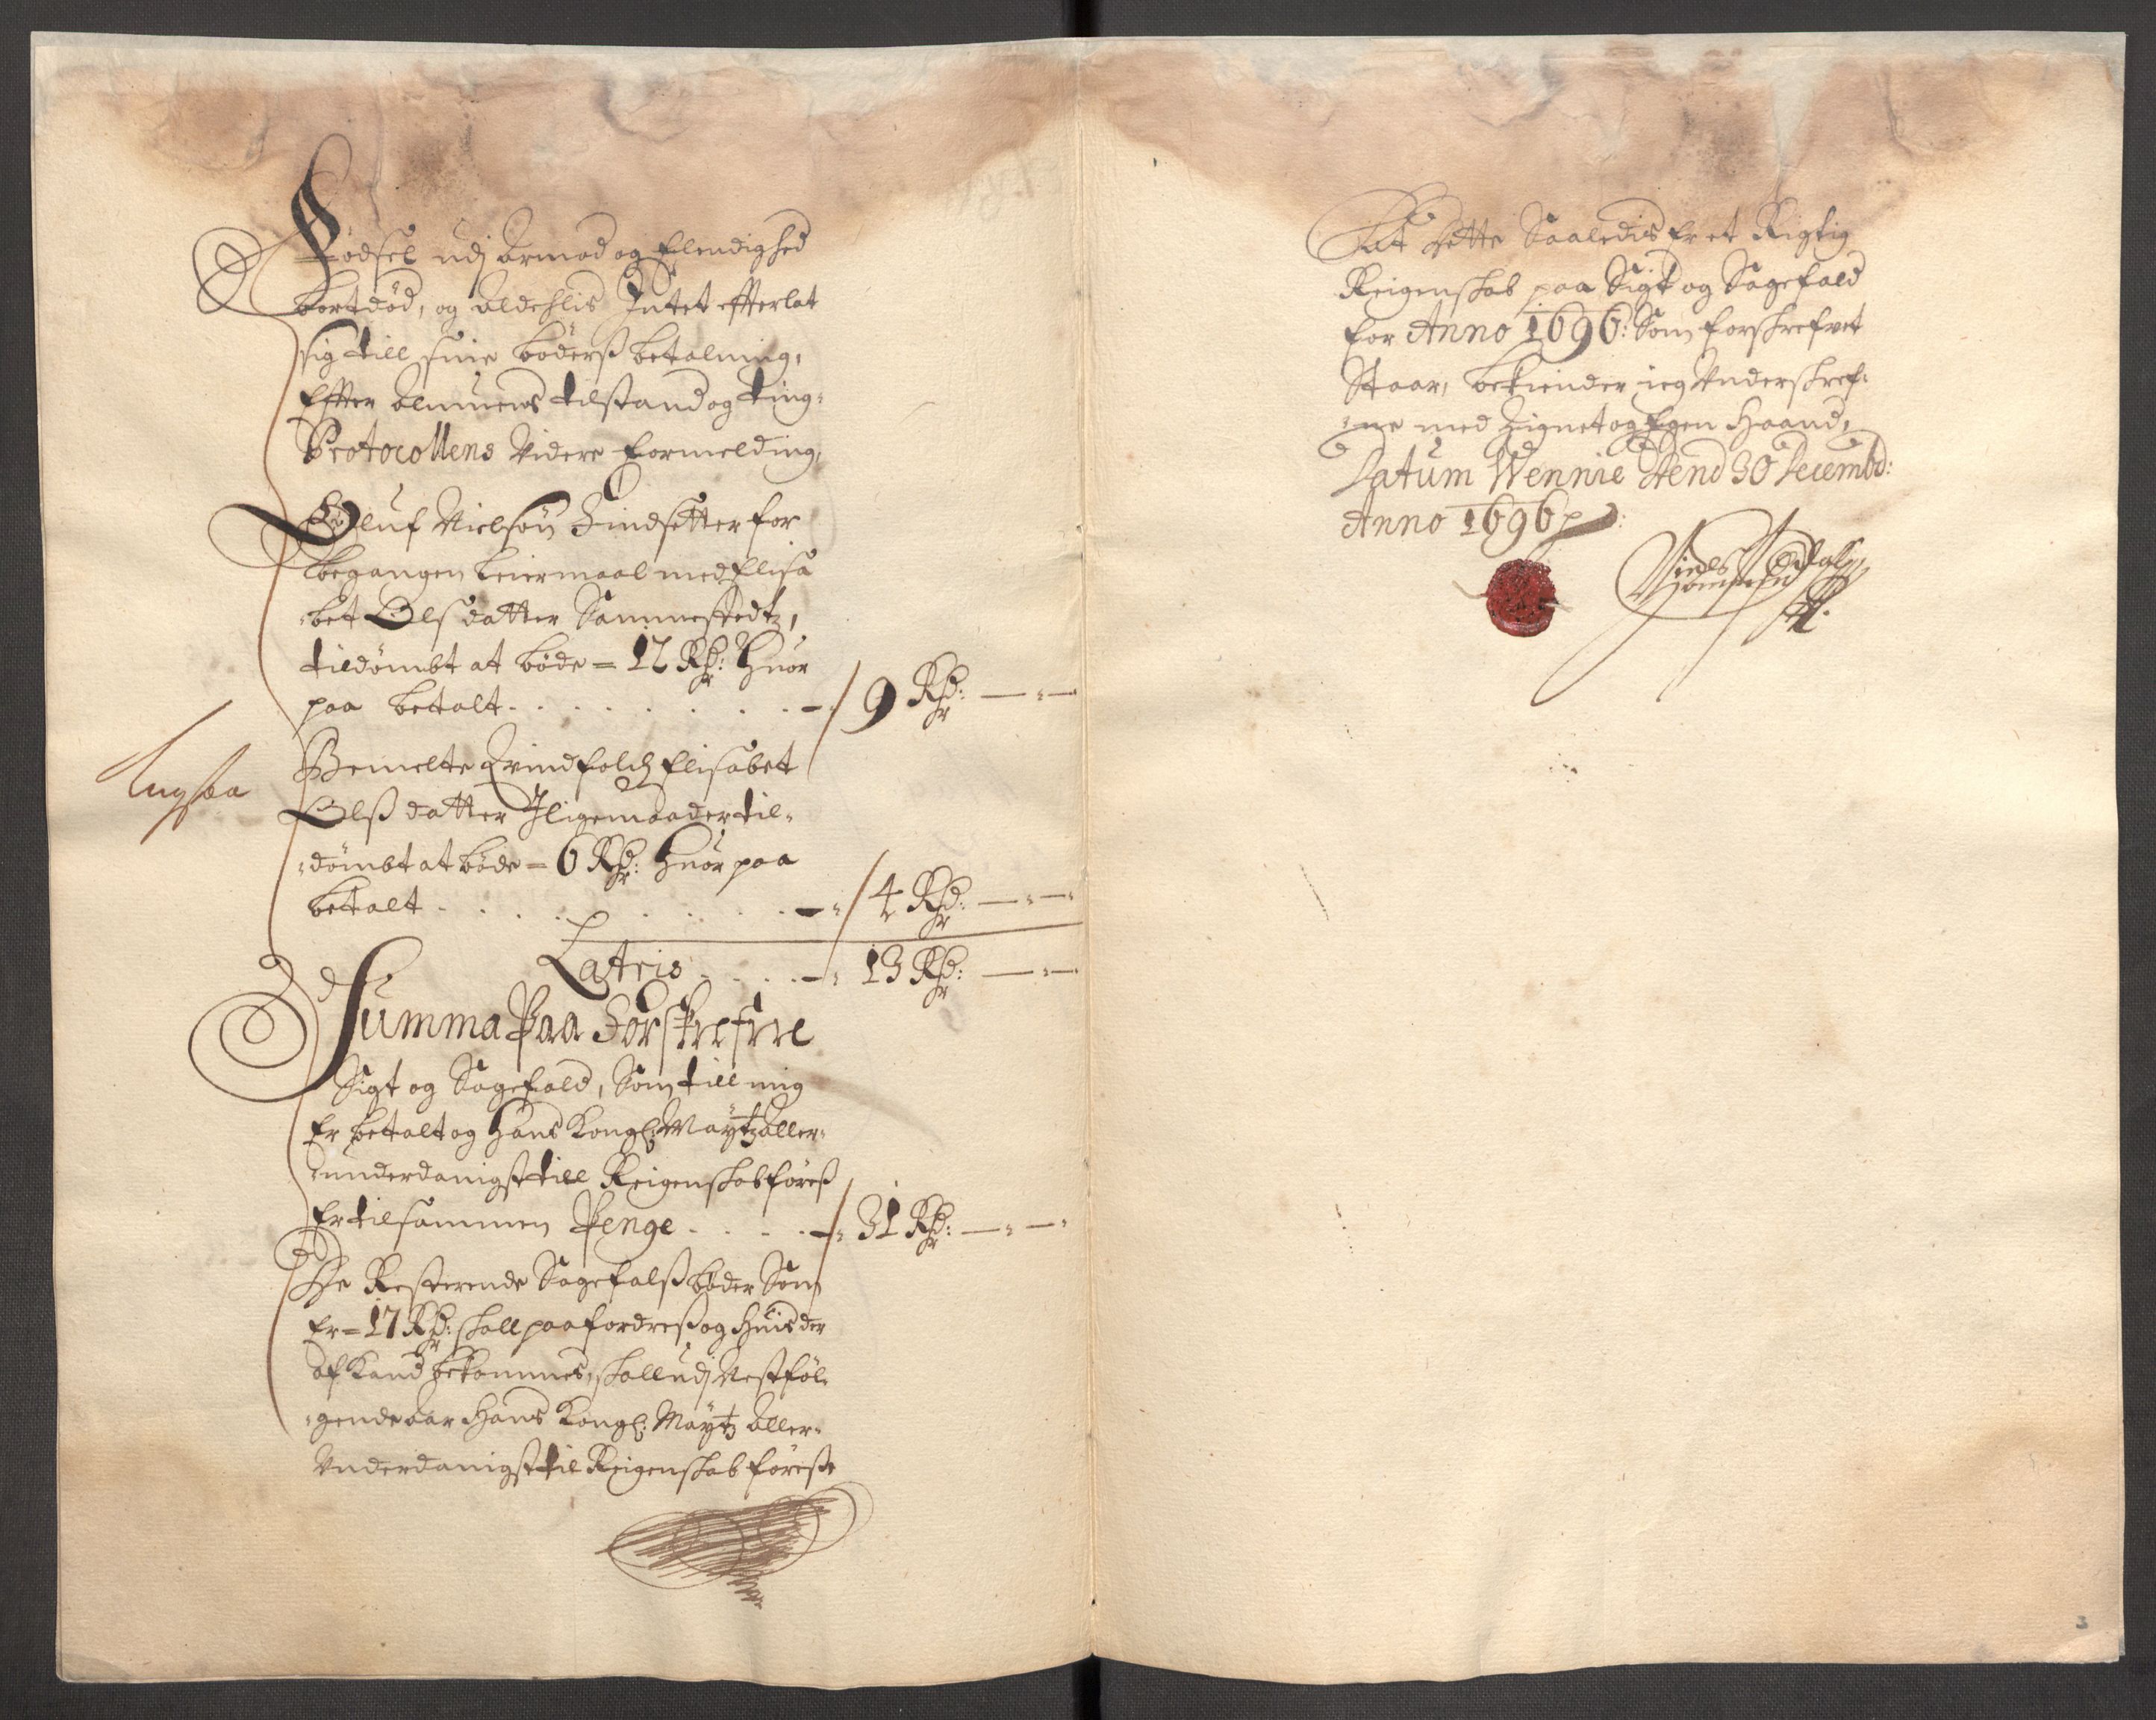 Födsel udj armod og Elendighed
bortdöd, og aldehlis Intet effterlat
sig till sine böders betalning,
Effter almuens tilstand og Ting-
Protocollens Videre formelding,
Oluf Nielsön Findsetter for
begangen Leiermaal med Elisa
bet Olsdatter Sammestedtz,
tildömbt at böde = 12 Rd: Huor
paa betalt . . . . . . . 9 Rd: — " —
Bemelte Qvindfolch Elisabet
Olsdatter Iligemaader til-
dömbt at böde = 6 Rd: Huor paa
betalt . . . . . . . 4 Rd: — " —
Latris . . . . 13 Rd: — " —
Summa Paa Forskrefne
Sigt og Sagefald, Som till mig
Er betalt og Hans Kongl: Maytz aller-
underdanigst till Reigenskab föres
Er tilsammen Penge . . . . 31 Rd: — " —
De Resterende Sagefals böder Som
Er = 17 Rd: skall paafordres og Huis der
af Kand bekommes, skall udj Nestföl-
gende aar Hans Kongl: Maytz Aller-
Underdanigst til Reigenskab föres
At dette Saaledis Er et Rigtig
Reigenskab paa Sigt og Sagefald
for Anno 1696: Som forskrefvet
Staar, bekiender ieg Underskref-
ne med Zignet og Egen Haand,
Datum Wennie Dend 30 Decembd:
Anno 1696
Niels